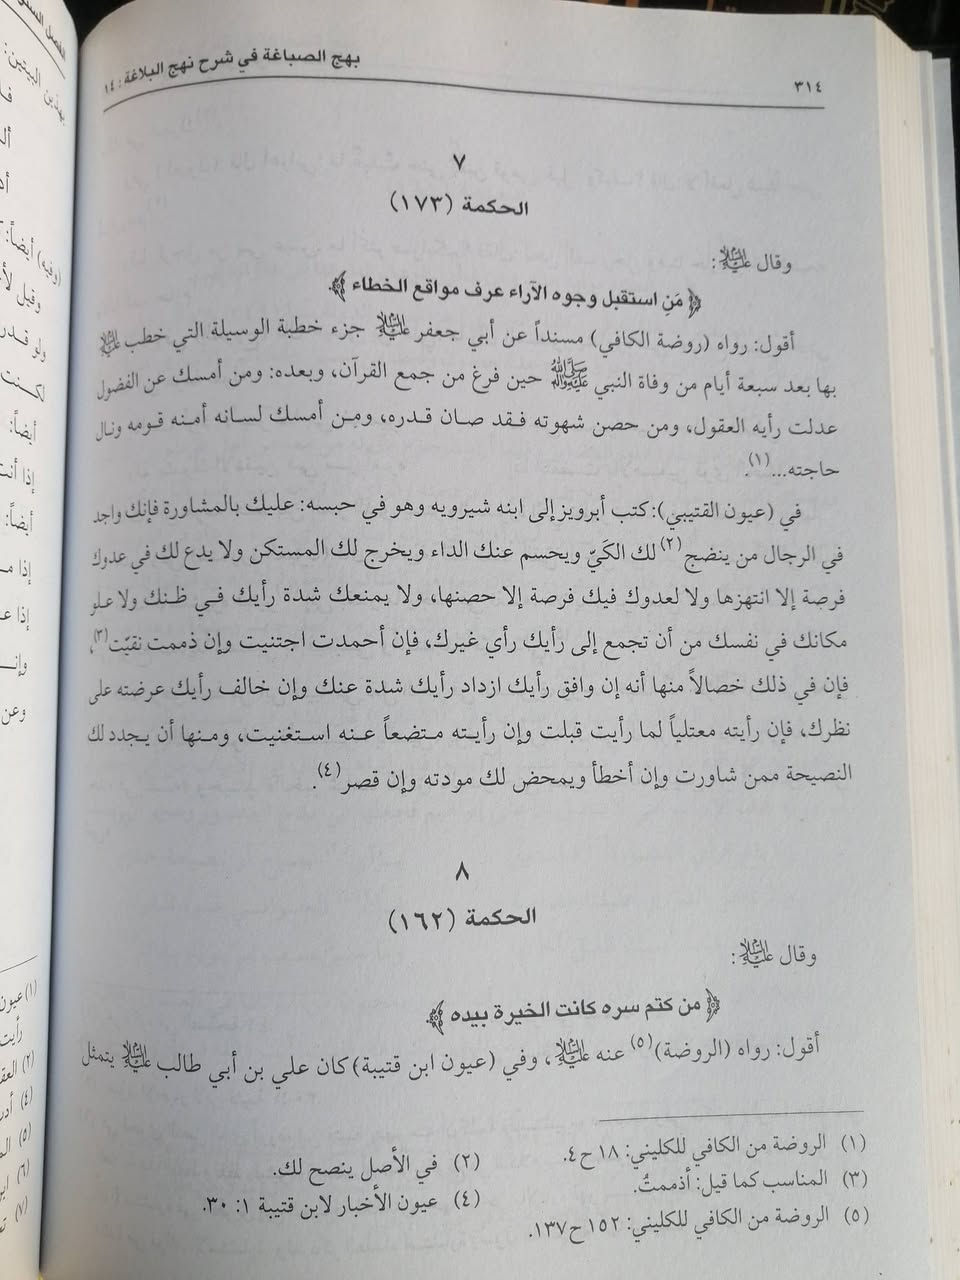 ٣١٤
بهج الصباغة في شرح نهج البلاغة: ١٤
٧
الحكمة (١٧٣)
وقال عليه السلام:
﴿مَن استقبل وجوه الآراء عرف مواقع الخطاء﴾
أقول: رواه (روضة الكافي) مسنداً عن أبي جعفر عليه السلام جزء خطبة الوسيلة التي خطب عليه السلام
بها بعد سبعة أيام من وفاة النبي ﷺ حين فرغ من جمع القرآن، وبعده: ومن أمسك عن الفضول
عدلت رأيه العقول، ومن حصن شهوته فقد صان قدره، ومن أمسك لسانه أمنه قومه ونال
حاجته...(١).
في (عيون القتيبي): كتب أبرويز إلى ابنه شيرويه وهو في حبسه: عليك بالمشاورة فإنك واجد
في الرجال من ينضج(٢) لك الكَيّ ويحسم عنك الداء ويخرج لك المستكن ولا يدع لك في عدوك
فرصة إلا انتهزها ولا لعدوك فيك فرصة إلا حصنها، ولا يمنعك شدة رأيك في ظنك ولا علو
مكانك في نفسك من أن تجمع إلى رأيك رأي غيرك، فإن أحمدت اجتنيت وإن ذممت نفيّت(٣)،
فإن في ذلك خصالاً منها أنه إن وافق رأيك ازداد رأيك شدة عنك وإن خالف رأيك عرضته على
نظرك، فإن رأيته معتلياً لما رأيت قبلت وإن رأيته متضعاً عنه استغنيت، ومنها أن يجدد لك
النصيحة ممن شاورت وإن أخطأ ويمحض لك مودته وإن قصر(٤).
٨
الحكمة (١٦٢)
وقال عليه السلام:
﴿من كتم سره كانت الخيرة بيده﴾
أقول: رواه (الروضة)(٥) عنه عليه السلام، وفي (عيون ابن قتيبة) كان علي بن أبي طالب عليه السلام يتمثل
(١) الروضة من الكافي للكليني: ١٨ ح٤.
(٢) في الأصل ينصح لك.
(٣) المناسب كما قيل: أذممتُ.
(٤) عيون الأخبار لابن قتيبة ١: ٣٠.
(٥) الروضة من الكافي للكليني: ١٥٢ ح١٣٧.
بهذين البيتين:
(وفيه) أيضاً:
وقيل لأ
ولو قدر
لكنت
أيضاً:
إذا أنت
أيضاً:
إذا
إذا
وإن
وعن
(١) عيون
رأيت
(٢) العقد
(٤)
(٥)
(٦)
(٧)